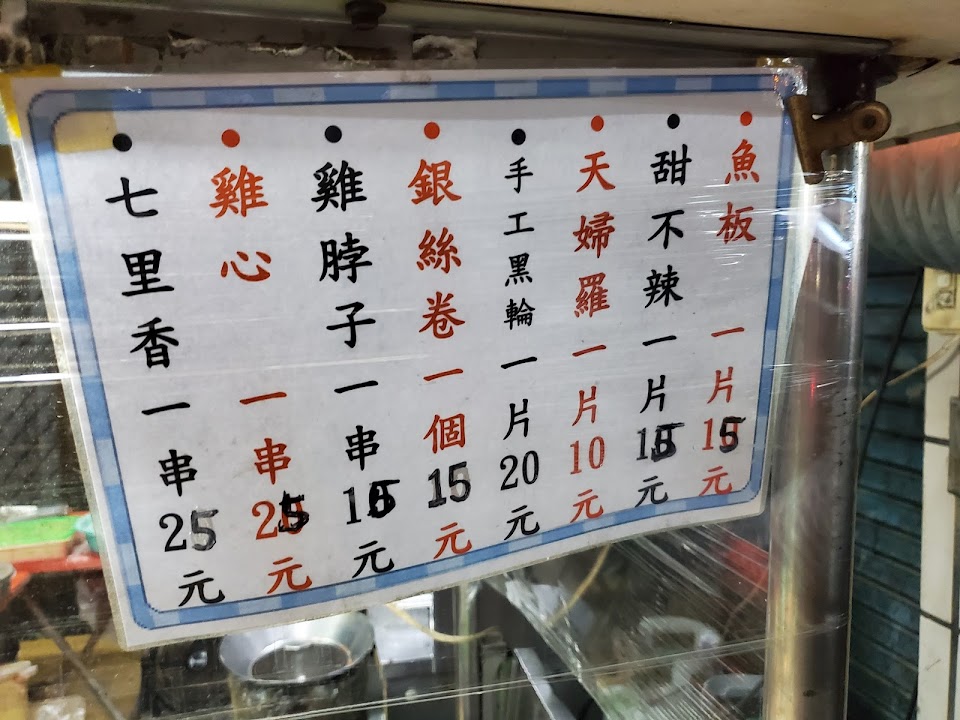 魚板 一片15元
甜不辣 一片15元
天婦羅 一片10元
手工黑輪 一片20元
銀絲卷 一個15元
雞脖子 一串15元
雞心 一串25元
七里香 一串25元